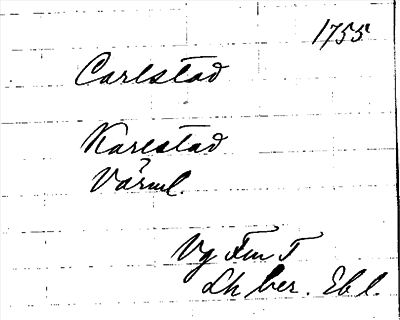 1755
Carlstad
Karlstad
Värml.
Vg Fm T
Lh ber. Ebl.